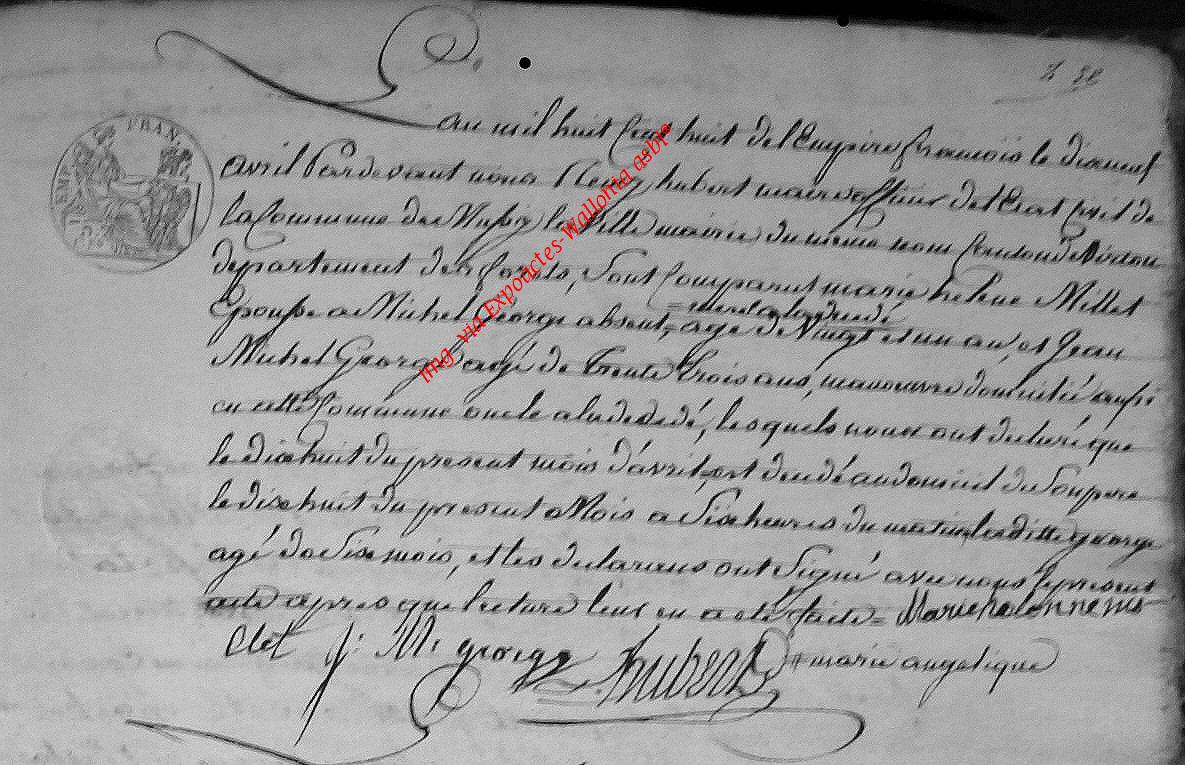 au mil huit Cent huit de l'Empire francois le dixneuf
avril Pardevant nous Remy hubert maire officier de l'Etat Civil de
la Commune de Mussy la Ville mairie du meme nom Canton de Virton
departement des forets, Sont Comparut marie helene Millet
= mere a la dcedé
Epouse a Michel George absent, agé de Vingt et un an, et Jean
Michel George agé de trente trois ans, manoeuvre domicilié aussi
en cette Commune oncle a la dcdedé, les quels nous ont declaré que
le dixhuit du present mois d'avril, est decedé au domicil du Soupere
le dixhuit du present Mois a Six heures du matin, george
agé de Six mois, et les declarans ont Signé avec nous le present
acte apres que lecture leur en a eté faite = Mariehelennemi
let J: M: george hubert # marie angelique
EMP FRAN
img via Expoactes-Wallonia asbl